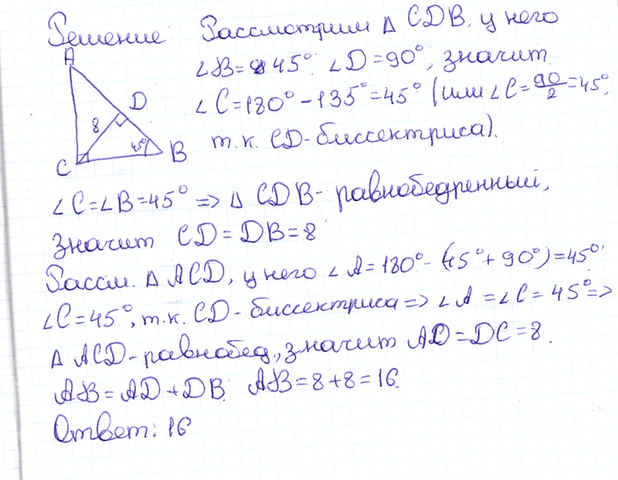 Решение Рассмотрим Δ CDB, у него
∠B = 45° ∠D = 90°, значит
∠C = 180° - 135° = 45° (или ∠C = 90/2 = 45°,
т.к. CD - биссектриса).
A
D
8
45°
C
B
∠C = ∠B = 45° => Δ CDB - равнобедренный,
значит CD = DB = 8
Рассм. Δ ACD, у него ∠A = 180° - (45° + 90°) = 45°
∠C = 45°, т.к. CD - биссектриса => ∠A = ∠C = 45° =>
Δ ACD - равнобед., значит AD = DC = 8.
AB = AD + DB. AB = 8 + 8 = 16.
Ответ: 16